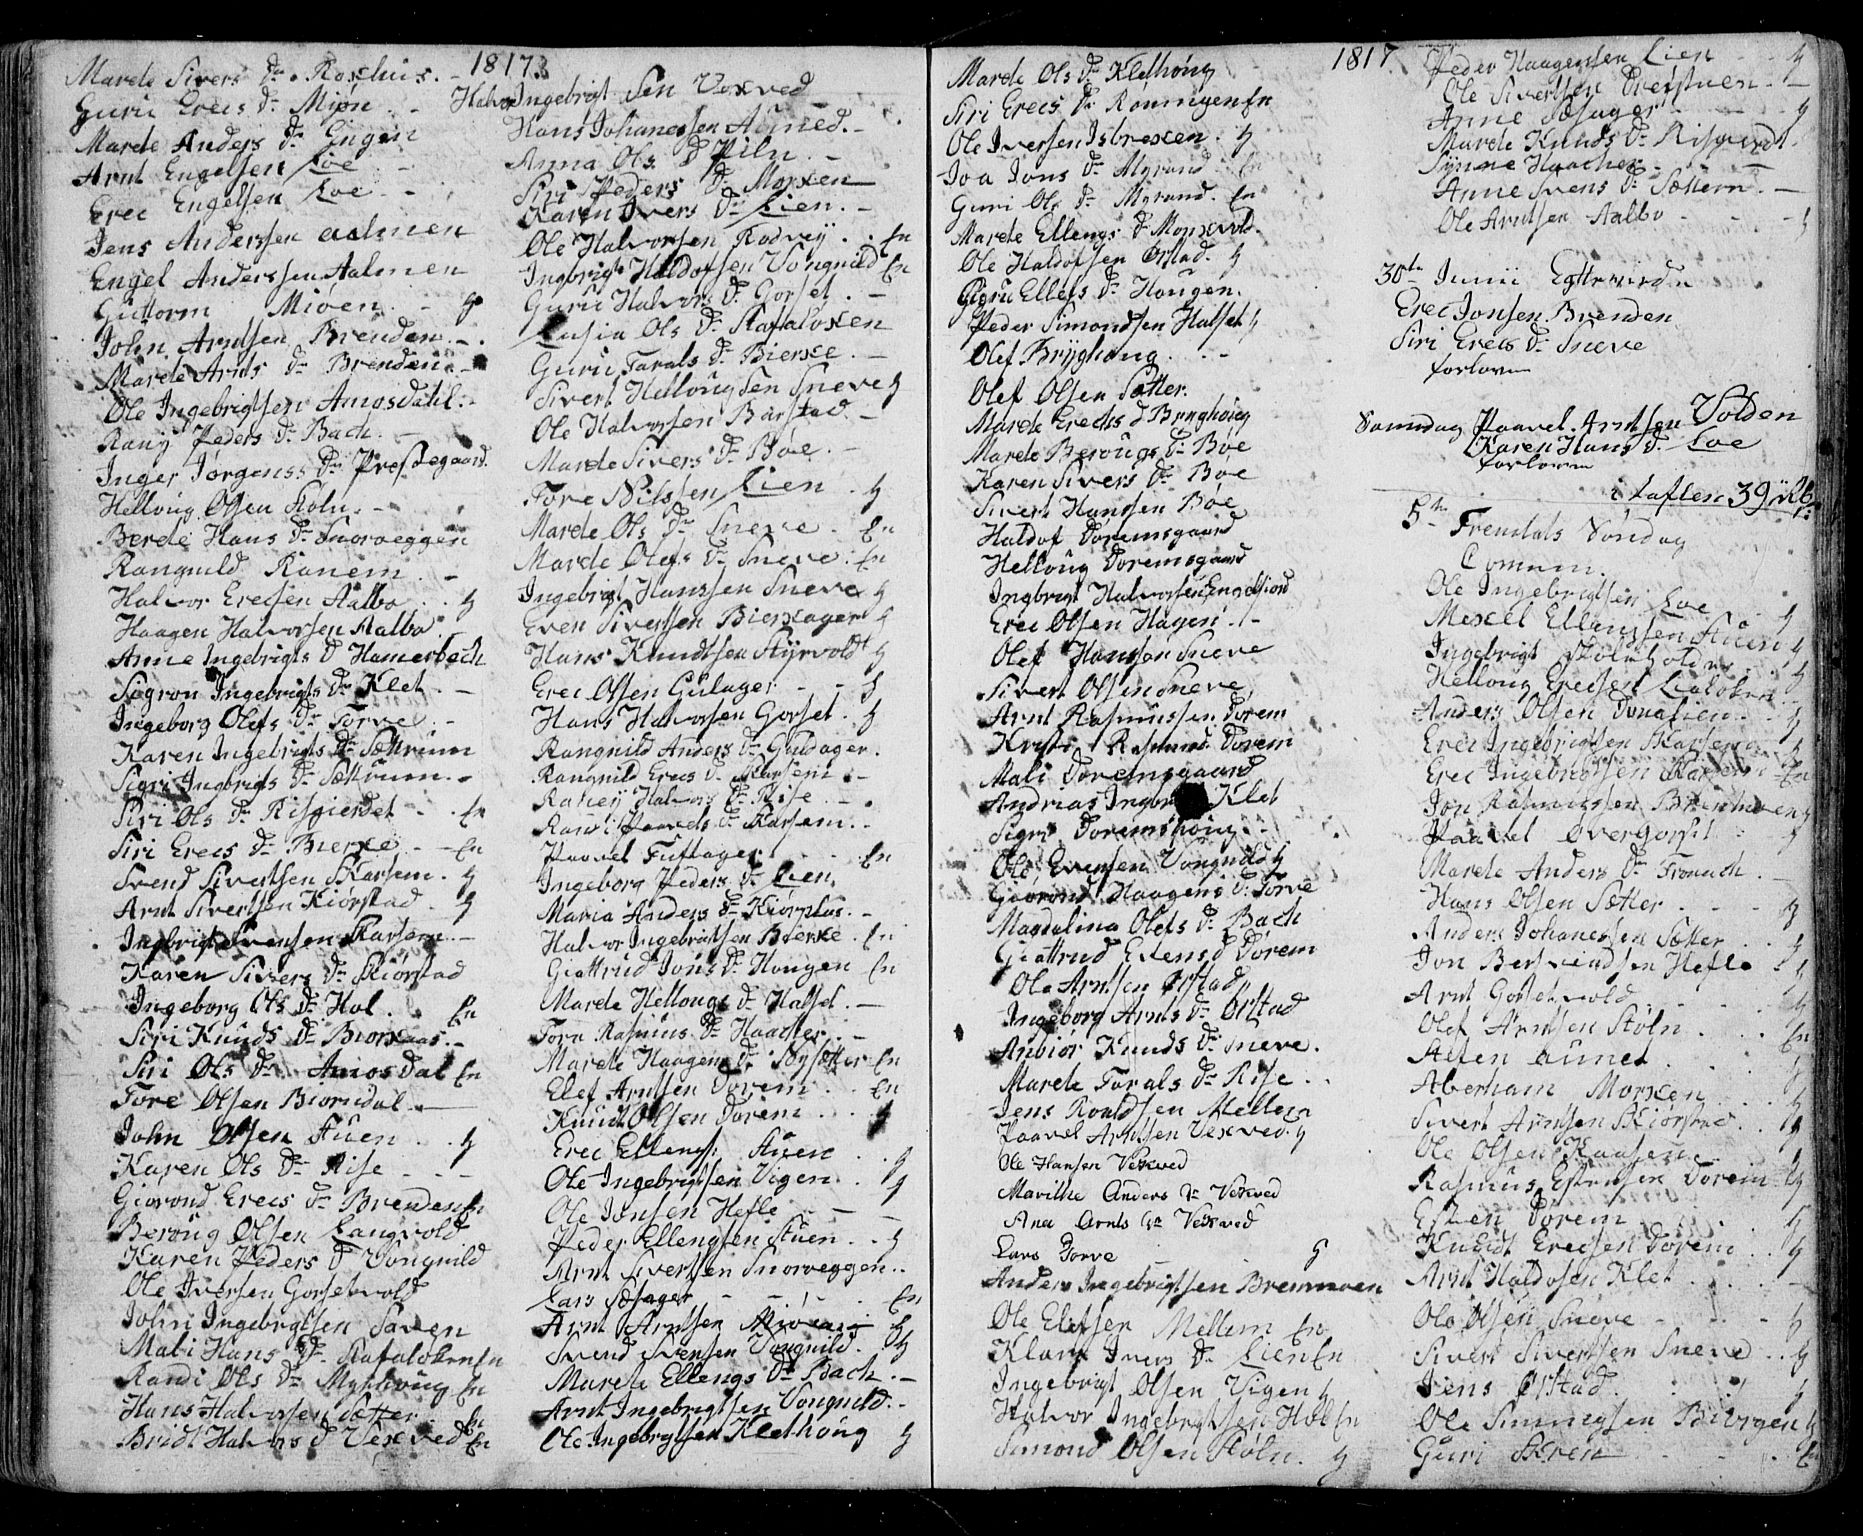 1817.
Marete Sivers Dr. Roxhus. -
Guru Erecs Dr. Mjøn . -
Marete Anders Dr Engen
Arnt Engelsen Loe -
Erec Engelsen Loe -
Jens Anderssen Aalmen
Engel Anderssen Aalmen
Guttorm Mioen . - g
John Arntsen Brenden . -
Marete Arnts Dr Brenden . -
Ole Ingebrigtsen Amosdahl. -
Rany Peders Dr. Bach. -
Inger Jørgenss Dr Prestegaard.
Hellvug Olsen Støln. -
Berete Hans Dr. Snoreggen
Rangnild Ranem . -
Halvor Erecsen Aalbo . . g
Haagen Halvorsen Aalbo .
Anne Ingebrigts D Hamerbech
Sogron Ingebrigts Dr Klet . -
Ingeborg Olefs Dr Torve . -
Karen Ingebrigts Dr Sættrum
Sigri Ingbrigts Dr Sættrum. -
Siri Ols Dr. Risgierdet - . En
Siri Erecs Dr Bierke . - En
Svend Sivertsen Skarsem . g
Arnt Sivertsen Kiørstad . g
Ingbrigt Svensen Skarsem. -
Karen Sivers Dr Skiørstad
Ingeborg Ols Dr. Hol . En
Siri Knuds Dr Biørkaas. -
Siri Ols Dr. Amosdal En
Tore Olsen Biørndal . -
John Olsen Stuen . . g
Karen Ols Dr Rise - - -
Giørond Erecs Dr Brenden En
Beroug Olsen Langvold
Karen Peders D Vongnild
Ole Iversen Gorsetvold
John Ingebrigtsen Saven
Mali Hans Dr. Rataloken En
Randi Ols Dr Myrhoug En
Hans Halvorsen Sætter . En
Bridt Halvors D Vexved En
Halvor Ingebrigt Sen Vexved
Hans Johanessen Auned. -
Anna Ols D Piln . -
Siri Peders Dr. Morken
Karen Ivers Dr Lien. -
Ole Halvorsen Rodvey . . En
Ingbrigt Haldofsen Vongnild En
Guru Halvors Dr Gorset . -
Lusia Ols Dr Rataloken
Guru Tarals Dr Bierke . -
Sivert Hellougsen Sneve g
Ole Halvorsen Barstad . -
Marete Sivers Dr. Boe . -
Tore Nilssen Lien . g
Marete Ols Dr Sneve . En
Marete Olefs Dr Sneve . En
Ingebrigt Hanssen Sneve g
Even Sivertsen Bierkager g
Hans Knudtsen Styrvold g
Erec Olsen Gulager - - g
Hans Halvorsen Gorset . g
Rangnild Anders Dr Guldager .
Rangnild Erecs D. Skarsem . -
Raney Halvors Dr. Rise . -
Randi Paavels Dr Karsem. -
Paavel Fuftager . . . En
Ingeborg Peders Dr Lien.
Maria Anders Dr Kiørphus. -
Halvor Ingebrigtsen Bierke . En
Giøttrud Jons Dr Hougen En
Marete Hellougs Dr Halset . -
Torn Rasmus Dr Haacher . -
Marete Haagens Dr. Nysætter En
Elef Arntsen Dorem . . En
Knudt Olsen Dorem . . . g
Erec Ellengs. Stuen . . g
Ole Ingebrigtsen Vigen . . g
Ole Jonsen Hefle - - -
Peder Ellengsen Stuen . . g
Arnt Sivertsen Snoreggen . .
Lars Sæsager - - . - . En
Arnt Arntsen Mioen g
Svend Svensen Vongnild. g
Marete Ellengs Dr Bach . -
Arnt Ingebrigtsen Vongnild. -
Ole Ingebrigtsen Klethoug g
1817
Marete Ols Dr Klethoug
Siri Erecs Dr. Ronningen En
Ole Iversen Isbrecken . g
Joa Jons Dr Myrand . En
Guri Ols Dr. Myrand . En
Marete Ellengs Dr Monsvold.
Ole Haldofsen Ørstad . g
Guru Ellefs Dr Hougen .
Peder Simondsen Halset g
Olef Bryghoug . . -
Olef Olsen Sætter.
Marete Erechs D Brynghoug
Marete Berougs Dr Boe
Karen Sivers Dr Boe
Sivert Hanssen Boe
Haldof Doremsgaard
Helloug Doremsgaard
Ingbrigt Halvorsen Engelsiord
Erec Olsen Hagen . -
Olef Hanssen Sneve
Sivert Olsen Sneve
Arnt Rasmussen Dorem
Kristi Rasmus Dorem
Mali Doremsgaard
Andrias Ingbr Klet
Sigri Doremshoug . -
Ole Evensen Vongnild g
Giørond Haagens D. Torve
Magdalina Olefs Dr Bach
Giøttrud Evens D Dorem
Ole Arntsen Ørstad
Ingeborg Arnts Dr Ørstad
Anbiør Knuds Dr Sneve .
Marete Torals Dr Rise . .
Jens Roaldsen Mellem
Paavel Arntsen Vexved . g
Ole Hansen Vexved
Marithe Anders Dr Vexved
Ana Arnts Dr Vexved
Lars Torve g
Anders Ingebrigtsen Brennmoen
Ole Elefsen Mellem En
Klara Ivers Dr Lien En
Ingebrigt Olsen Vigen g
Halvor Ingebrigtsen Hol En
Simond Olsen Støln . g
Peder Haagensen Lien - - g
Ole Sivertsen Dreistuen . -
Anne Sæsager - - - g
Marete Knuds Dr Risgierdt .
Synne Haacher . - - -
Anne Svens Dr Sættem . -
Ole Arntsen Aalbo - - - g
30te Junii
Erec Jonsen Brenden
Siri Erecs Dr Sneve
forlovn
Samdag Paavel Arntsen Volden
Karen Hans Dr. Loe
forlovn
i taflen 39
5te Tremdals Søndag
Comun.
Ole Ingebrigtsen Loe . . g
Mexel Ellengssen Stuen g
Ingebrigt Skoleholder . g
Helloug Erecsen Lialøken g
Anders Olsen Donasien . . g
Erec Ingebrigtsen Skarsem g
Erec Ingebrigtsen Karsem En
Jon Rasmussen Brennmoen g
Paavel Overgorset . g
Marete Anders Dr Fronach . -
Hans Olsen Sætter . - - g
Anders Johanessen Sætter . . g
Jon Berssvendsen Hefle . g
Arnt Gorsetvold . - . . g
Olef Arntsen Støln . . . En
Steen Aunet . . . g
Aberham Morken . . g
Sivert Arntsen Skiørstad . . g
Ole Olsen Kaasen . . g
Rasmus Estensen Dorem . g
Esten Dorem . . . g
Knudt Erecsen Dorem . . g
Arnt Haldosen Klet . . . -
Ole Olsen Sneve - . . g
Sivert Sivertsen Sneve . . g
Jens Ørstad . . . . g
Ole Simmensen Biørgen g
Guri Steen . - . . En